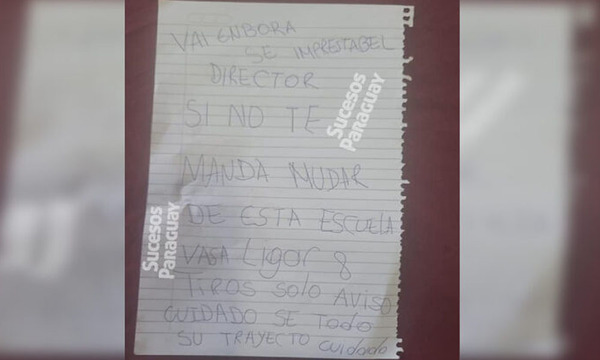 VAI ENBORA
SE IMPRESTABEL
DIRECTOR
SI NO TE
MANDA MUDAR
DE ESTA ESCUELA
VASA LIGAR 8
TIROS SOLO AVISO
CUIDADO SE TODO
SU TRAYECTO CUIDADO
Sucesos
Paraguay
Sucesos
Paraguay